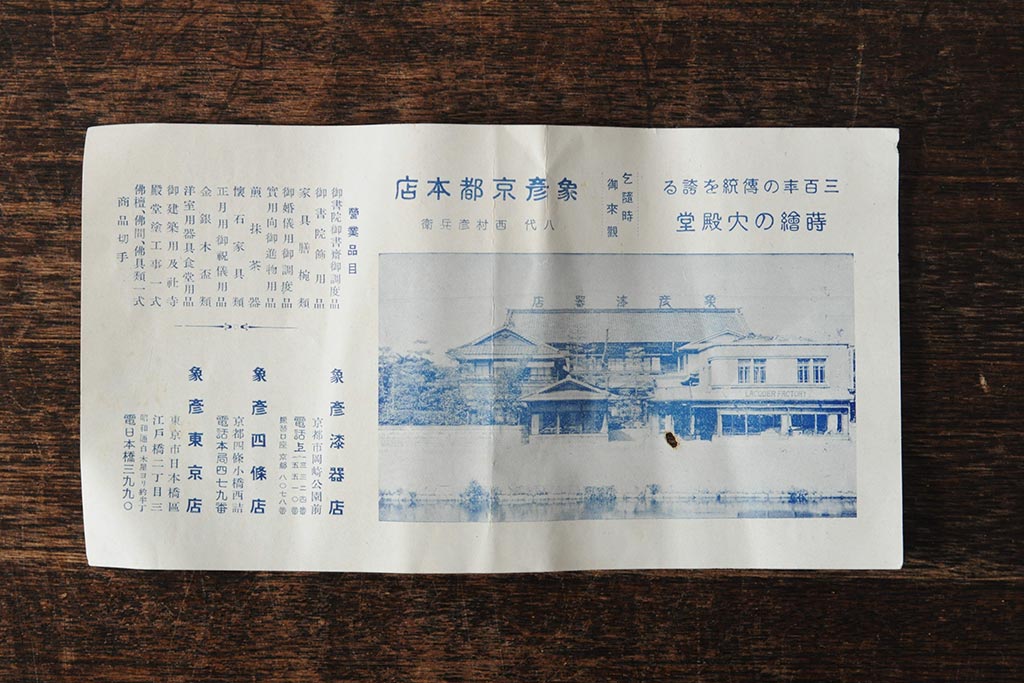 三百年の傳統を誇る
蒔繪の大殿堂
乞隨時
御來觀
象彦京都本店
八代 西村彦兵衛
象彦漆器店
LACQUER FACTORY
營業品目
御書院御書齋御調度品
御書院飾用品
家具膳椀類
御婚儀用御調度品
實用向御進物用品
煎抹茶器
懷石家具類
正月用御祝儀用品
金銀木盃類
洋室用器具食堂用品
御建築用及社寺
殿堂塗工事一式
佛檀、佛間、佛具類一式
商品切手
象彦漆器店
京都市岡崎公園前
電話上
三三二四番
五五一〇番
振替口座京都八〇七八番
象彦四條店
京都四條小橋西詰
電話本局四七九番
象彦東京店
東京市日本橋區
江戸橋二丁目三
昭和通白木屋ヨリ約半丁
電日本橋三九九〇